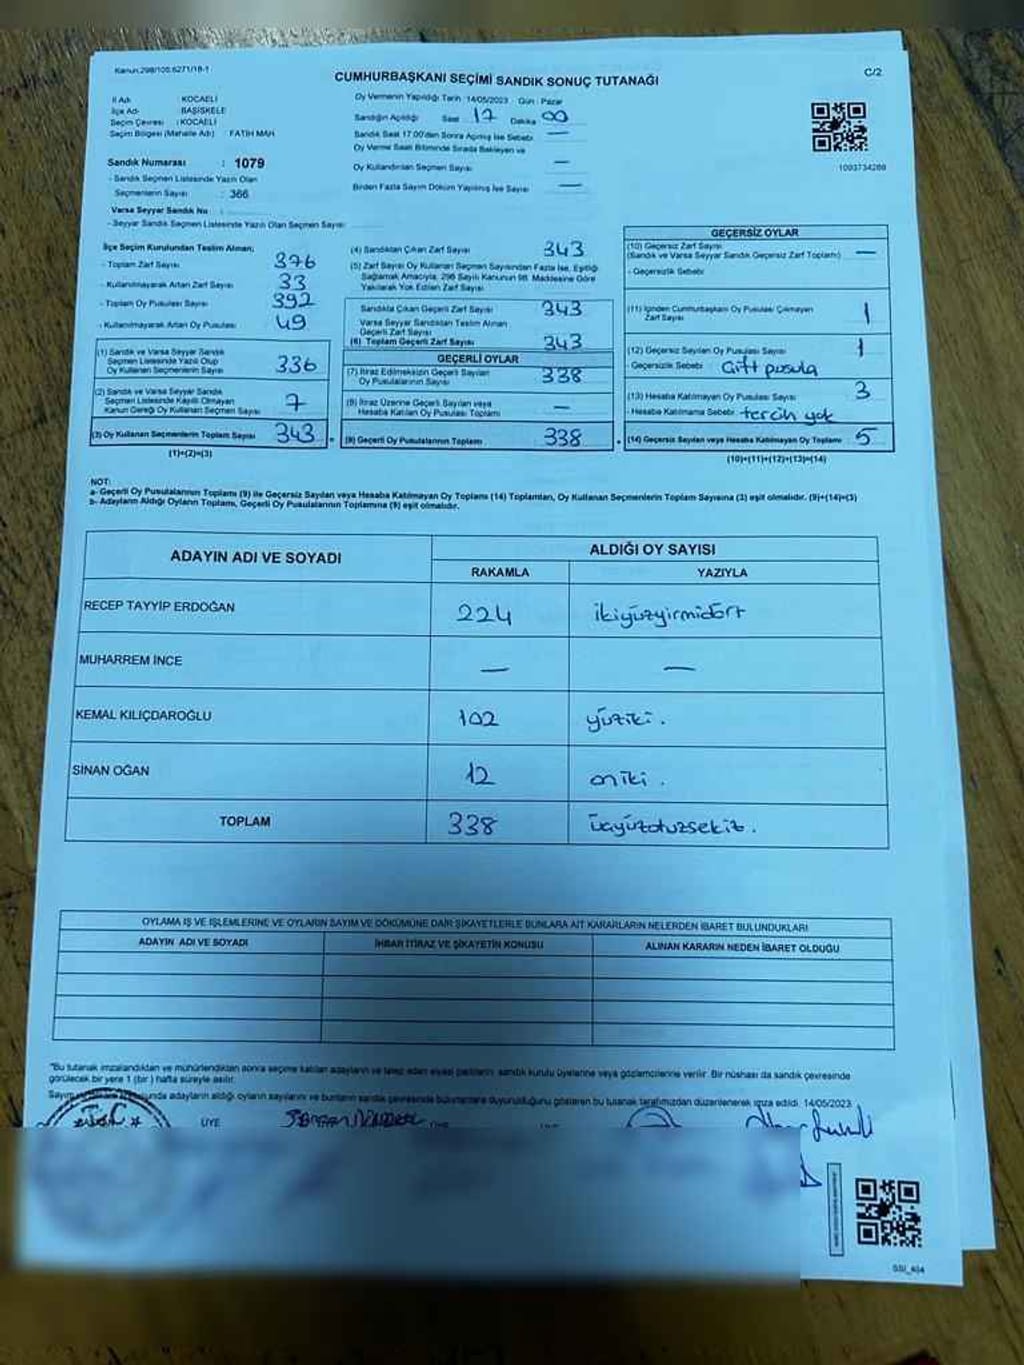 Kanun:298/105,6271/18-1
CUMHURBAŞKANI SEÇİMİ SANDIK SONUÇ TUTANAĞI
C/2
İl Adı : KOCAELİ
İlçe Adı : BAŞİSKELE
Seçim Çevresi : KOCAELİ
Seçim Bölgesi (Mahalle Adı) : FATİH MAH
Sandık Numarası : 1079
- Sandık Seçmen Listesinde Yazılı Olan
Seçmenlerin Sayısı : 366
Varsa Seyyar Sandık No :
- Seyyar Sandık Seçmen Listesinde Yazılı Olan Seçmen Sayısı:
Oy Vermenin Yapıldığı Tarih :14/05/2023 Gün : Pazar
Sandığın Açıldığı Saat : 17 Dakika 00
Sandık Saat 17.00'den Sonra Açılmış İse Sebebi : —
Oy Verme Saati Bitiminde Sırada Bekleyen ve
Oy Kullandırılan Seçmen Sayısı —
Birden Fazla Sayım Döküm Yapılmış İse Sayısı —
1003734269
İlçe Seçim Kurulundan Teslim Alınan;
- Toplam Zarf Sayısı 376
- Kullanılmayarak Artan Zarf Sayısı 33
- Toplam Oy Pusulası Sayısı 392
- Kullanılmayarak Artan Oy Pusulası 49
(1) Sandık ve Varsa Seyyar Sandık
Seçmen Listesinde Yazılı Olup
Oy Kullanan Seçmenlerin Sayısı 336
(2) Sandık ve Varsa Seyyar Sandık
Seçmen Listesinde Kayıtlı Olmayan
Kanun Gereği Oy Kullanan Seçmen Sayısı 7
(3) Oy Kullanan Seçmenlerin Toplam Sayısı 343
(1)+(2)=(3)
(4) Sandıktan Çıkan Zarf Sayısı 343
(5) Zarf Sayısı Oy Kullanan Seçmen Sayısından Fazla İse, Eşitliği
Sağlamak Amacıyla, 298 Sayılı Kanunun 98. Maddesine Göre
Yakılarak Yok Edilen Zarf Sayısı
Sandıkta Çıkan Geçerli Zarf Sayısı 343
Varsa Seyyar Sandıktan Teslim Alınan
Geçerli Zarf Sayısı
(6) Toplam Geçerli Zarf Sayısı 343
GEÇERLİ OYLAR
(7) İtiraz Edilmeksizin Geçerli Sayılan
Oy Pusulalarının Sayısı 338
(8) İtiraz Üzerine Geçerli Sayılan veya
Hesaba Katılan Oy Pusulası Toplamı —
(9) Geçerli Oy Pusulalarının Toplamı 338
GEÇERSİZ OYLAR
(10) Geçersiz Zarf Sayısı —
(Sandık ve Varsa Seyyar Sandık Geçersiz Zarf Toplamı)
- Geçersizlik Sebebi
(11) İçinden Cumhurbaşkanı Oy Pusulası Çıkmayan
Zarf Sayısı 1
(12) Geçersiz Sayılan Oy Pusulası Sayısı 1
Geçersizlik Sebebi : Çift pusula
(13) Hesaba Katılmayan Oy Pusulası Sayısı 3
- Hesaba Katılmama Sebebi : tercih yok
(14) Geçersiz Sayılan veya Hesaba Katılmayan Oy Toplamı 5
(10)+(11)+(12)+(13)=(14)
NOT:
a- Geçerli Oy Pusulalarının Toplamı (9) ile Geçersiz Sayılan veya Hesaba Katılmayan Oy Toplamı (14) Toplamları, Oy Kullanan Seçmenlerin Toplam Sayısına (3) eşit olmalıdır. (9)+(14)=(3)
b- Adayların Aldığı Oyların Toplamı, Geçerli Oy Pusulalarının Toplamına (9) eşit olmalıdır.
ADAYIN ADI VE SOYADI
ALDIĞI OY SAYISI
RAKAMLA YAZIYLA
RECEP TAYYİP ERDOĞAN 224 ikiyüzyirmidört
MUHARREM İNCE — —
KEMAL KILIÇDAROĞLU 102 yüziki.
SİNAN OĞAN 12 oniki.
TOPLAM 338 üçyüzotuzsekiz.
OYLAMA İŞ VE İŞLEMLERİNE VE OYLARIN SAYIM VE DÖKÜMÜNE DAİR ŞİKAYETLERLE BUNLARA AİT KARARLARIN NELERDEN İBARET BULUNDUKLARI
ADAYIN ADI VE SOYADI İHBAR İTİRAZ VE ŞİKAYETİN KONUSU ALINAN KARARIN NEDEN İBARET OLDUĞU
*Bu tutanak imzalandıktan ve mühürlendikten sonra seçime katılan adayların ve talep eden siyasi partilerin, sandık kurulu üyelerine veya gözlemcilerine verilir. Bir nüshası da sandık çevresinde
görülecek bir yere 1 (bir) hafta süreyle asılır.
Sayım adayların aldığı oyların sayılarını ve bunların sandık çevresinde bulunanlara duyurulduğunu gösteren bu tutanak tarafımızdan düzenlenerek imza edildi. 14/05/2023
T.C.
ÜYE
SSI_404